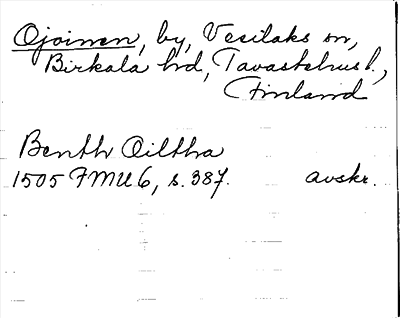 Ojoinen, by, Vesilaks sn,
Birkala hd, Tavastehus l.,
Finland
Benth Oiltha
1505 FMU 6, s. 387. avskr.